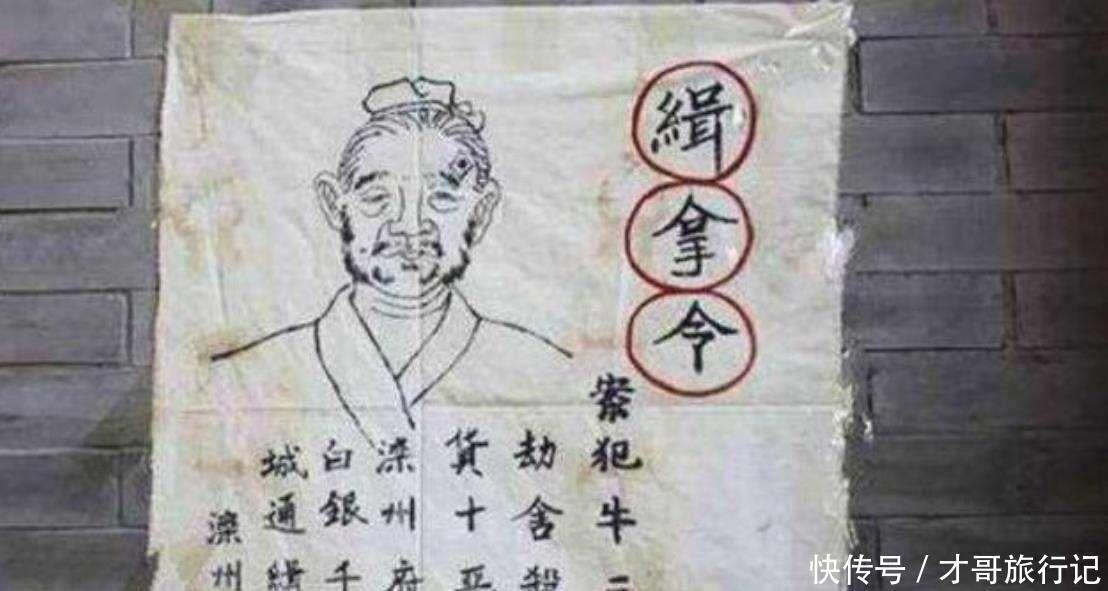 緝拿令
案犯牛二
劫舍殺
貨十惡
滦州府
白銀千
城通緝
滦州
快传号 / 才哥旅行记